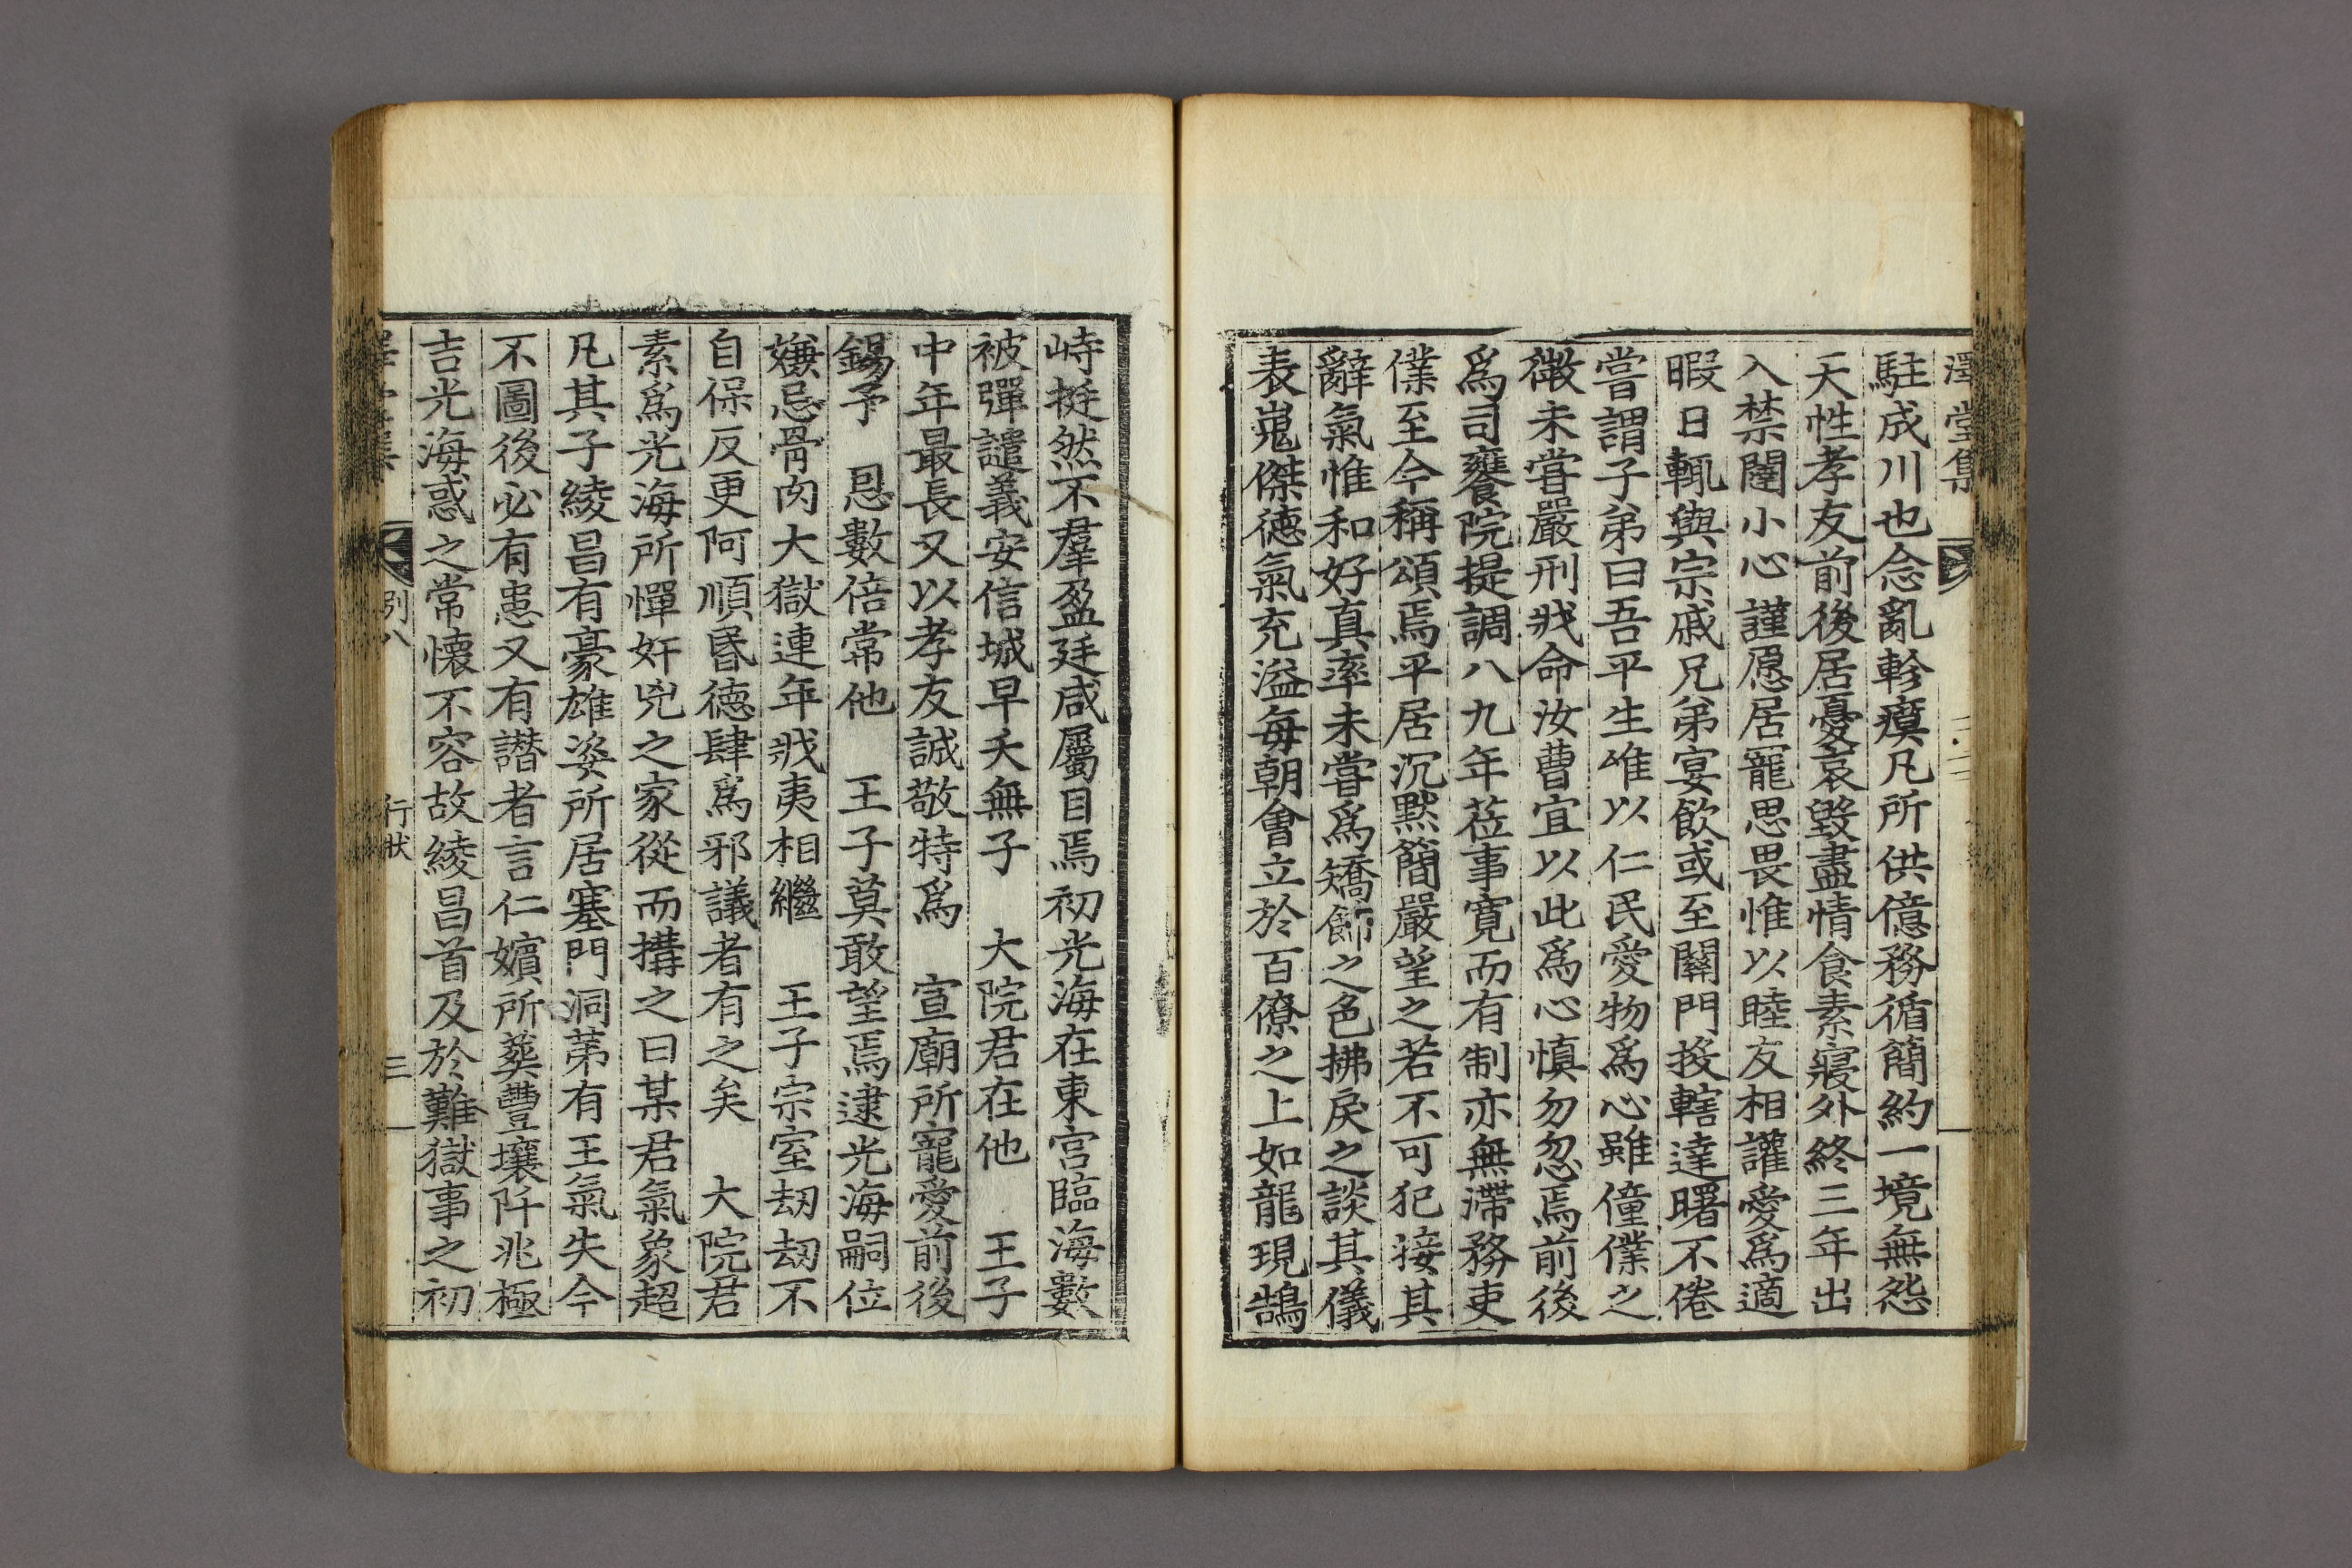 澤堂集
駐成川也念亂軫瘼凡所供億務循簡約一境無怨
天性孝友前後居憂哀毀盡情食素寢外終三年出
入禁闥小心謹愿居寵思畏惟以睦友相讙愛爲適
暇日輒與宗戚兄弟宴飮或至闗門投轄達曙不倦
嘗謂子弟曰吾平生唯以仁民愛物爲心雖僮僕之
微未嘗嚴刑戕命汝曹宜以此爲心愼勿忽焉前後
爲司饔院提調八九年莅事寬而有制亦無滯務吏
僕至今稱頌焉平居沉默簡嚴望之若不可犯接其
辭氣惟和好真率未嘗爲矯飾之色拂戾之談其儀
表嵬傑德氣充溢每朝會立於百僚之上如龍現鵠
峙挺然不羣盈廷咸屬目焉初光海在東宮臨海數
被彈譴義安信城早夭無子 大院君在他 王子
中年最長又以孝友誠敬特爲 宣廟所寵愛前後
錫予 恩數倍常他 王子莫敢望焉逮光海嗣位
嫌忌骨肉大獄連年戕夷相繼 王子宗室刧刧不
自保反更阿順昬德肆爲邪議者有之矣 大院君
素爲光海所憚奸兇之家從而搆之曰某君氣象超
凡其子綾昌有豪雄姿所居塞門洞苐有王氣失今
不圖後必有患又有譖者言仁嬪所葬豐壤阡兆極
吉光海惑之常懷不容故綾昌首及於難獄事之初
別八 行狀 三